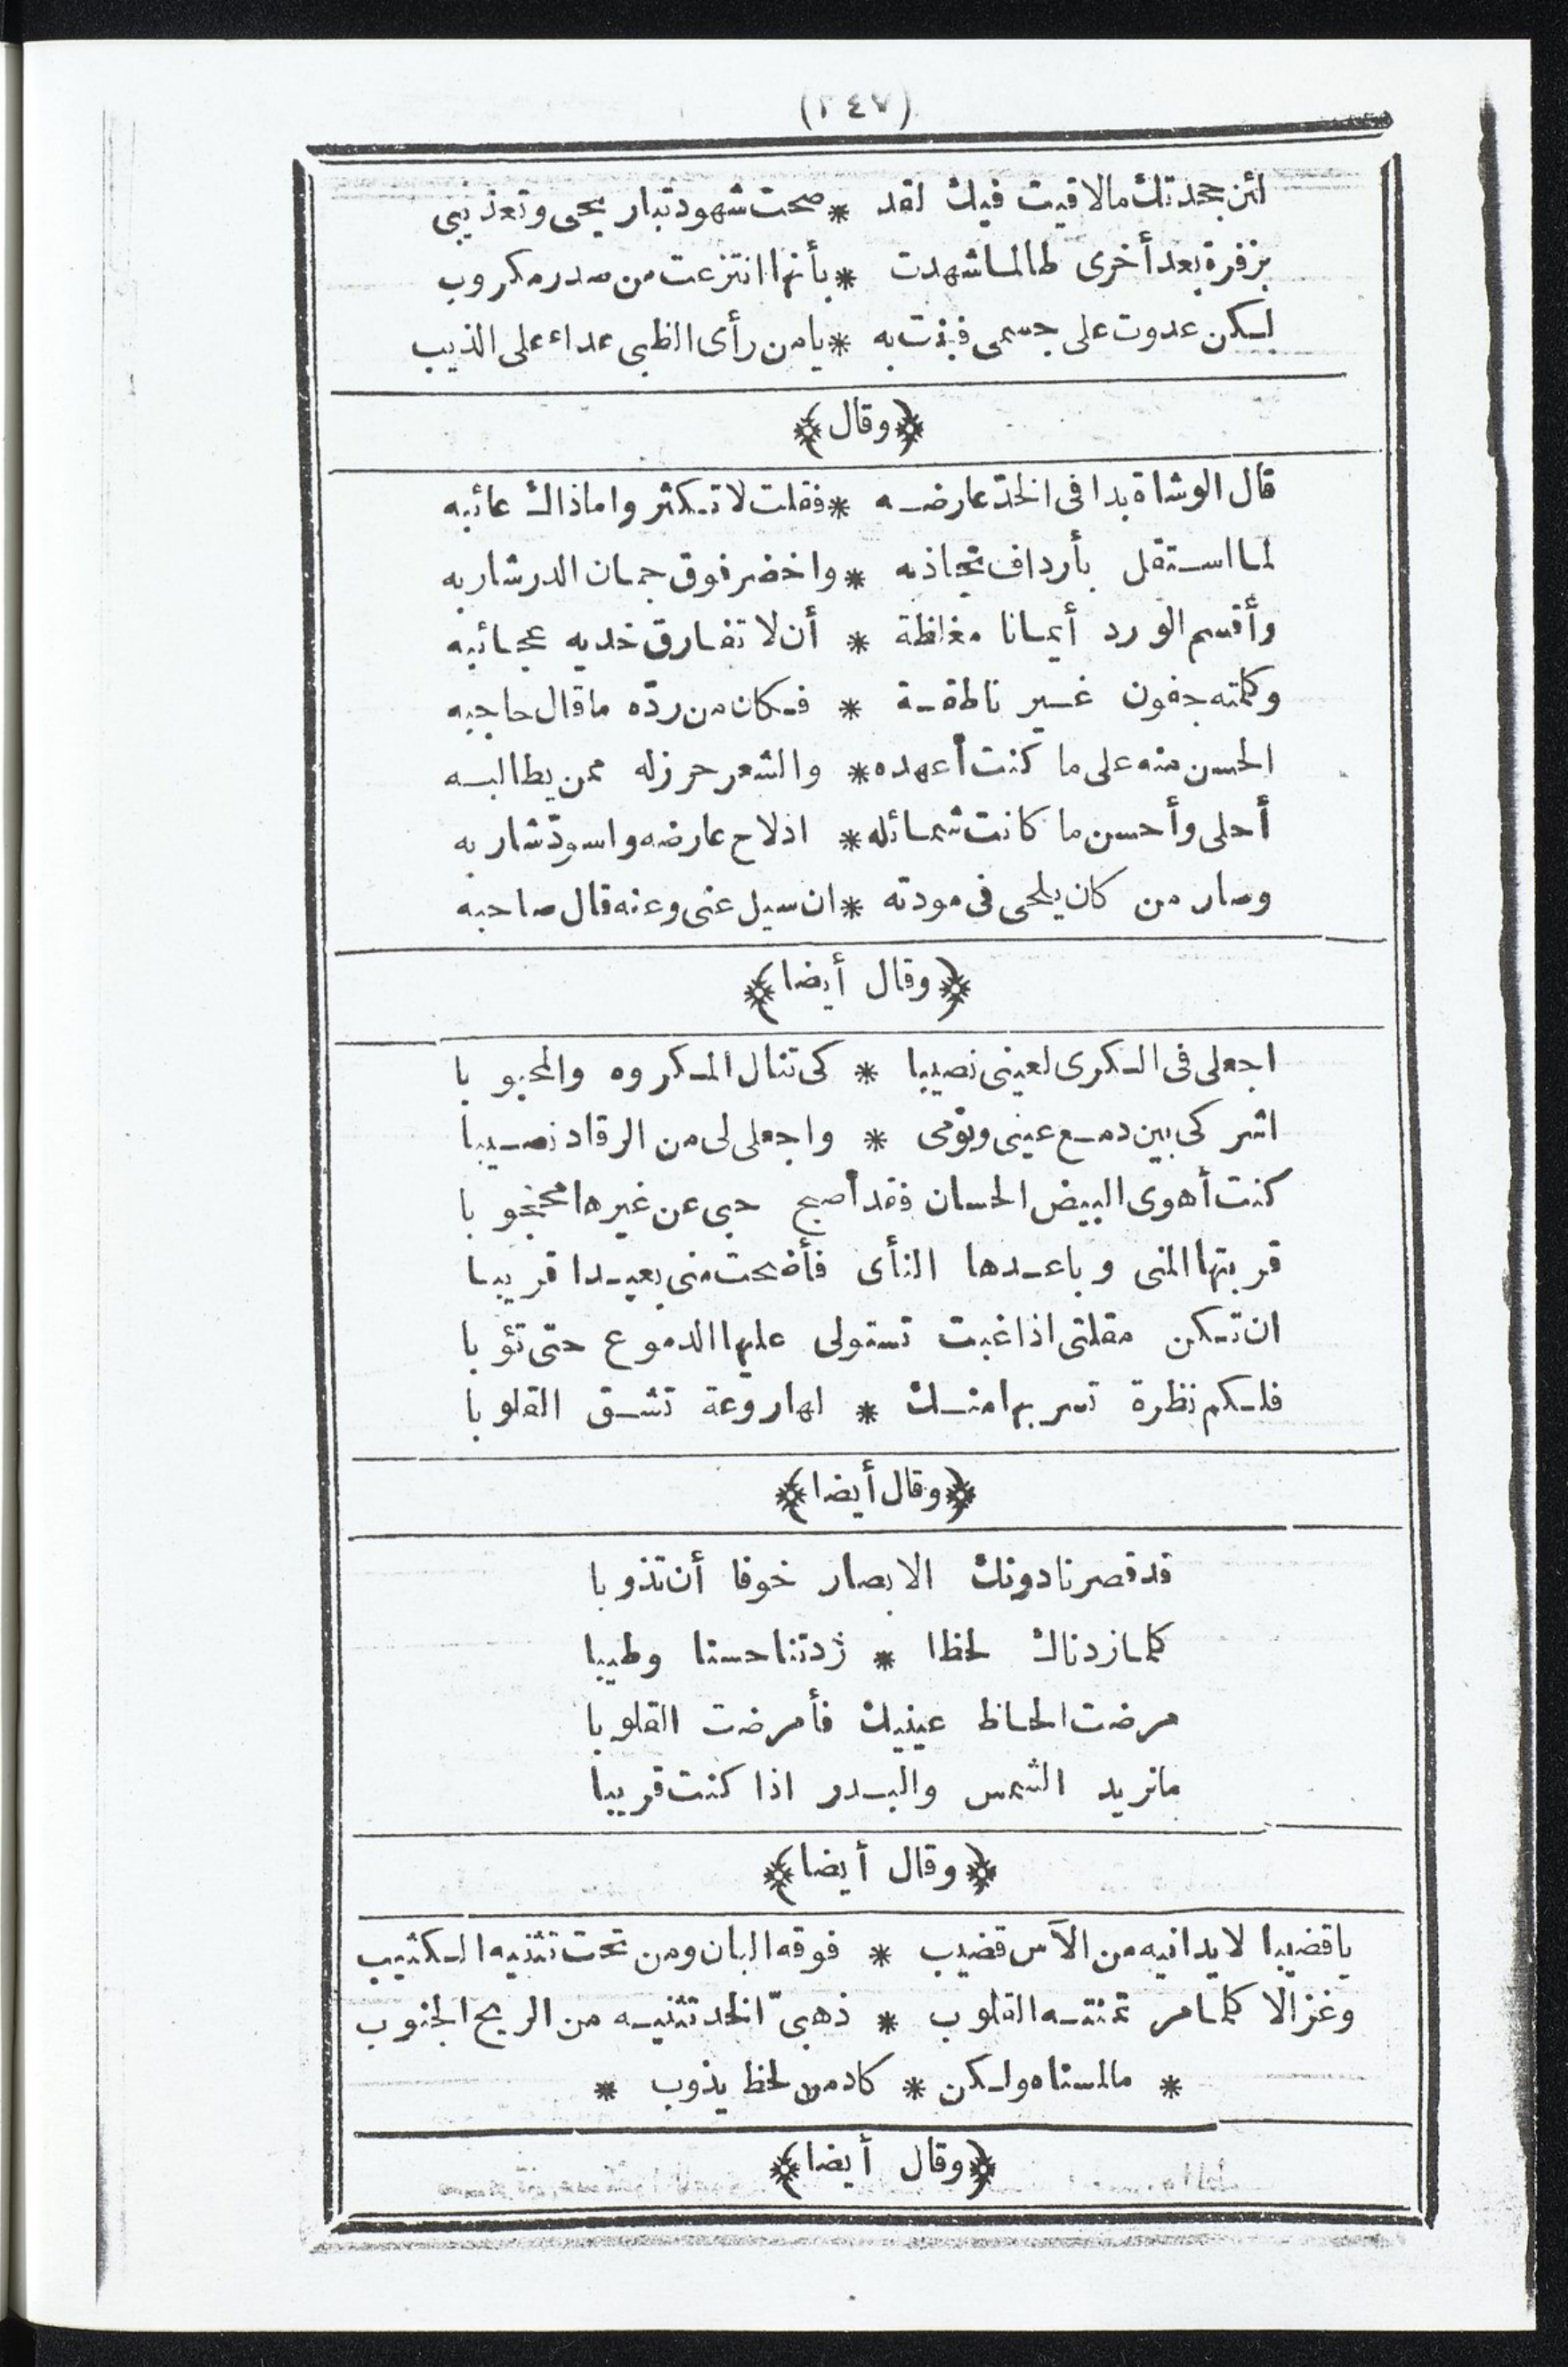 (٢٤٧)
لئن جحدتك مالاقيت فيك لقد * صحت شهود تباريحى وتعذيبى
بزفرة بعد أخرى طالما شهدت * بأنها انتزعت من صدر مكروب
لكن عدوت على جسمى فبنت به * يامن رأى الظبى عداء على الذيب
﴿وقال﴾
قال الوشاة بدا فى الخدّ عارضه * فقلت لا تكثروا ماذاك عائبه
لما استقل بأرداف تجاذبه * واخضر فوق جمان الدر شاربه
وأقسم الورد أيمانا مغلظة * أن لا تفارق خديه عجائبه
وكلمته جفون غير ناطقة * فكان من ردّه ماقال حاجبه
الحسن منه على ما كنت أعهده * والشعر حرز له ممن يطالبه
أحلى وأحسن ما كانت شمائله * اذ لاح عارضه واسودّ شاربه
وصار من كان يلحى فى مودته * ان سيل عنى وعنه قال صاحبه
﴿وقال أيضا﴾
اجعلى فى الكرى لعينى نصيبا * كى تنال المكروه والمحبوبا
اشركى بين دمع عينى ونومى * واجعلى لى من الرقاد نصيبا
كنت أهوى البيض الحسان فقد أصبح حبى عن غيرها محجوبا
قربتها المنى وباعدها النأى فأضحت منى بعيدا قريبا
ان تكن مقلتى اذا غبت تستولى عليها الدموع حتى تؤبا
فلكم نظرة تسر بها منك * لها روعة تشق القلوبا
﴿وقال أيضا﴾
قد قصرنا دونك الابصار خوفا أن تذوبا
كلما زدناك لحظا * زدتنا حسنا وطيبا
مرضت الحاظ عينيك فأمرضت القلوبا
مانريد الشمس والبدر اذا كنت قريبا
﴿وقال أيضا﴾
ياقضيبا لايدانيه من الآس قضيب * فوقه البان ومن تحت تثنيه الكثيب
وغزالا كلما مر تمنته القلوب * ذهبىّ الخد تثنيه من الريح الجنوب
* مالمسناه ولكن * كاد من لحظ يذوب *
﴿وقال أيضا﴾